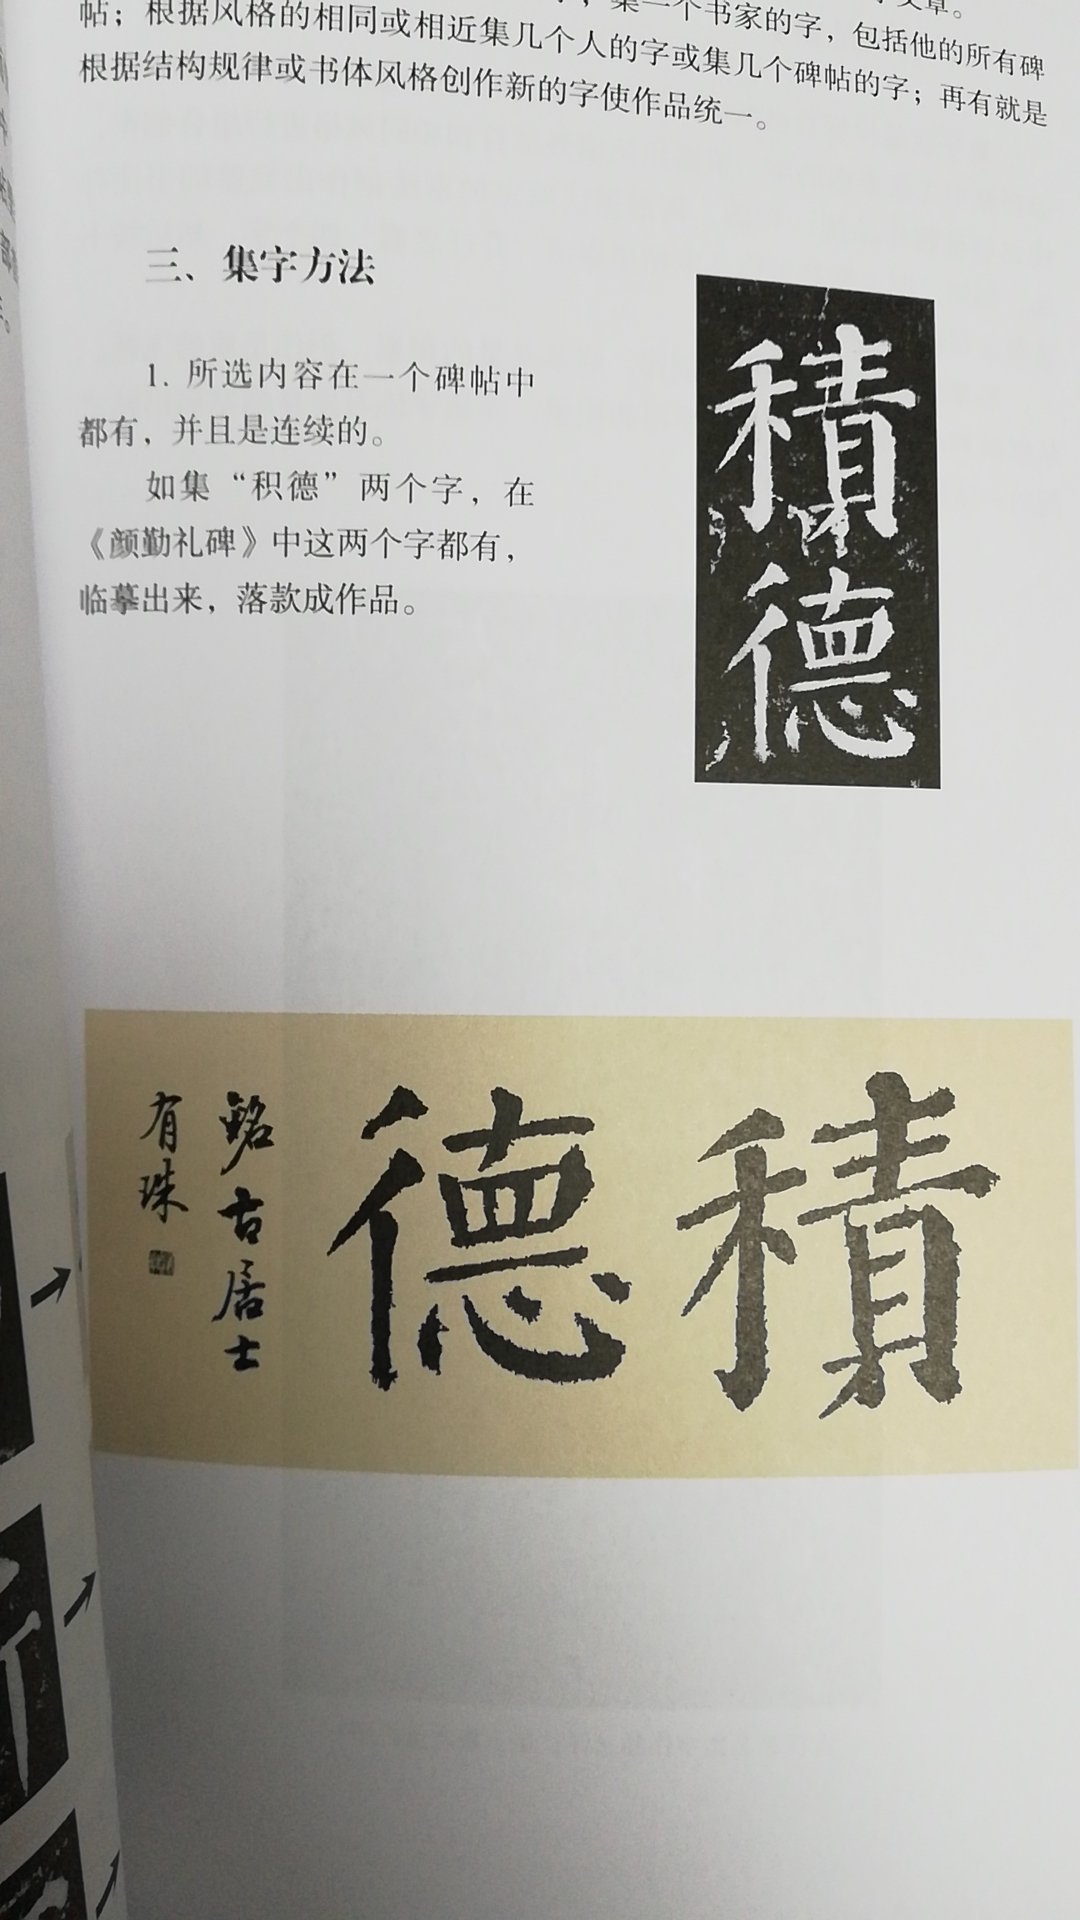 文章。
，集一个书家的字，包括他的所有碑
帖；根据风格的相同或相近集几个人的字或集几个碑帖的字；再有就是
根据结构规律或书体风格创作新的字使作品统一。
三、集字方法
1. 所选内容在一个碑帖中
都有，并且是连续的。
如集“积德”两个字，在
《颜勤礼碑》中这两个字都有，
临摹出来，落款成作品。
積德
積德
銘古居士
有珠